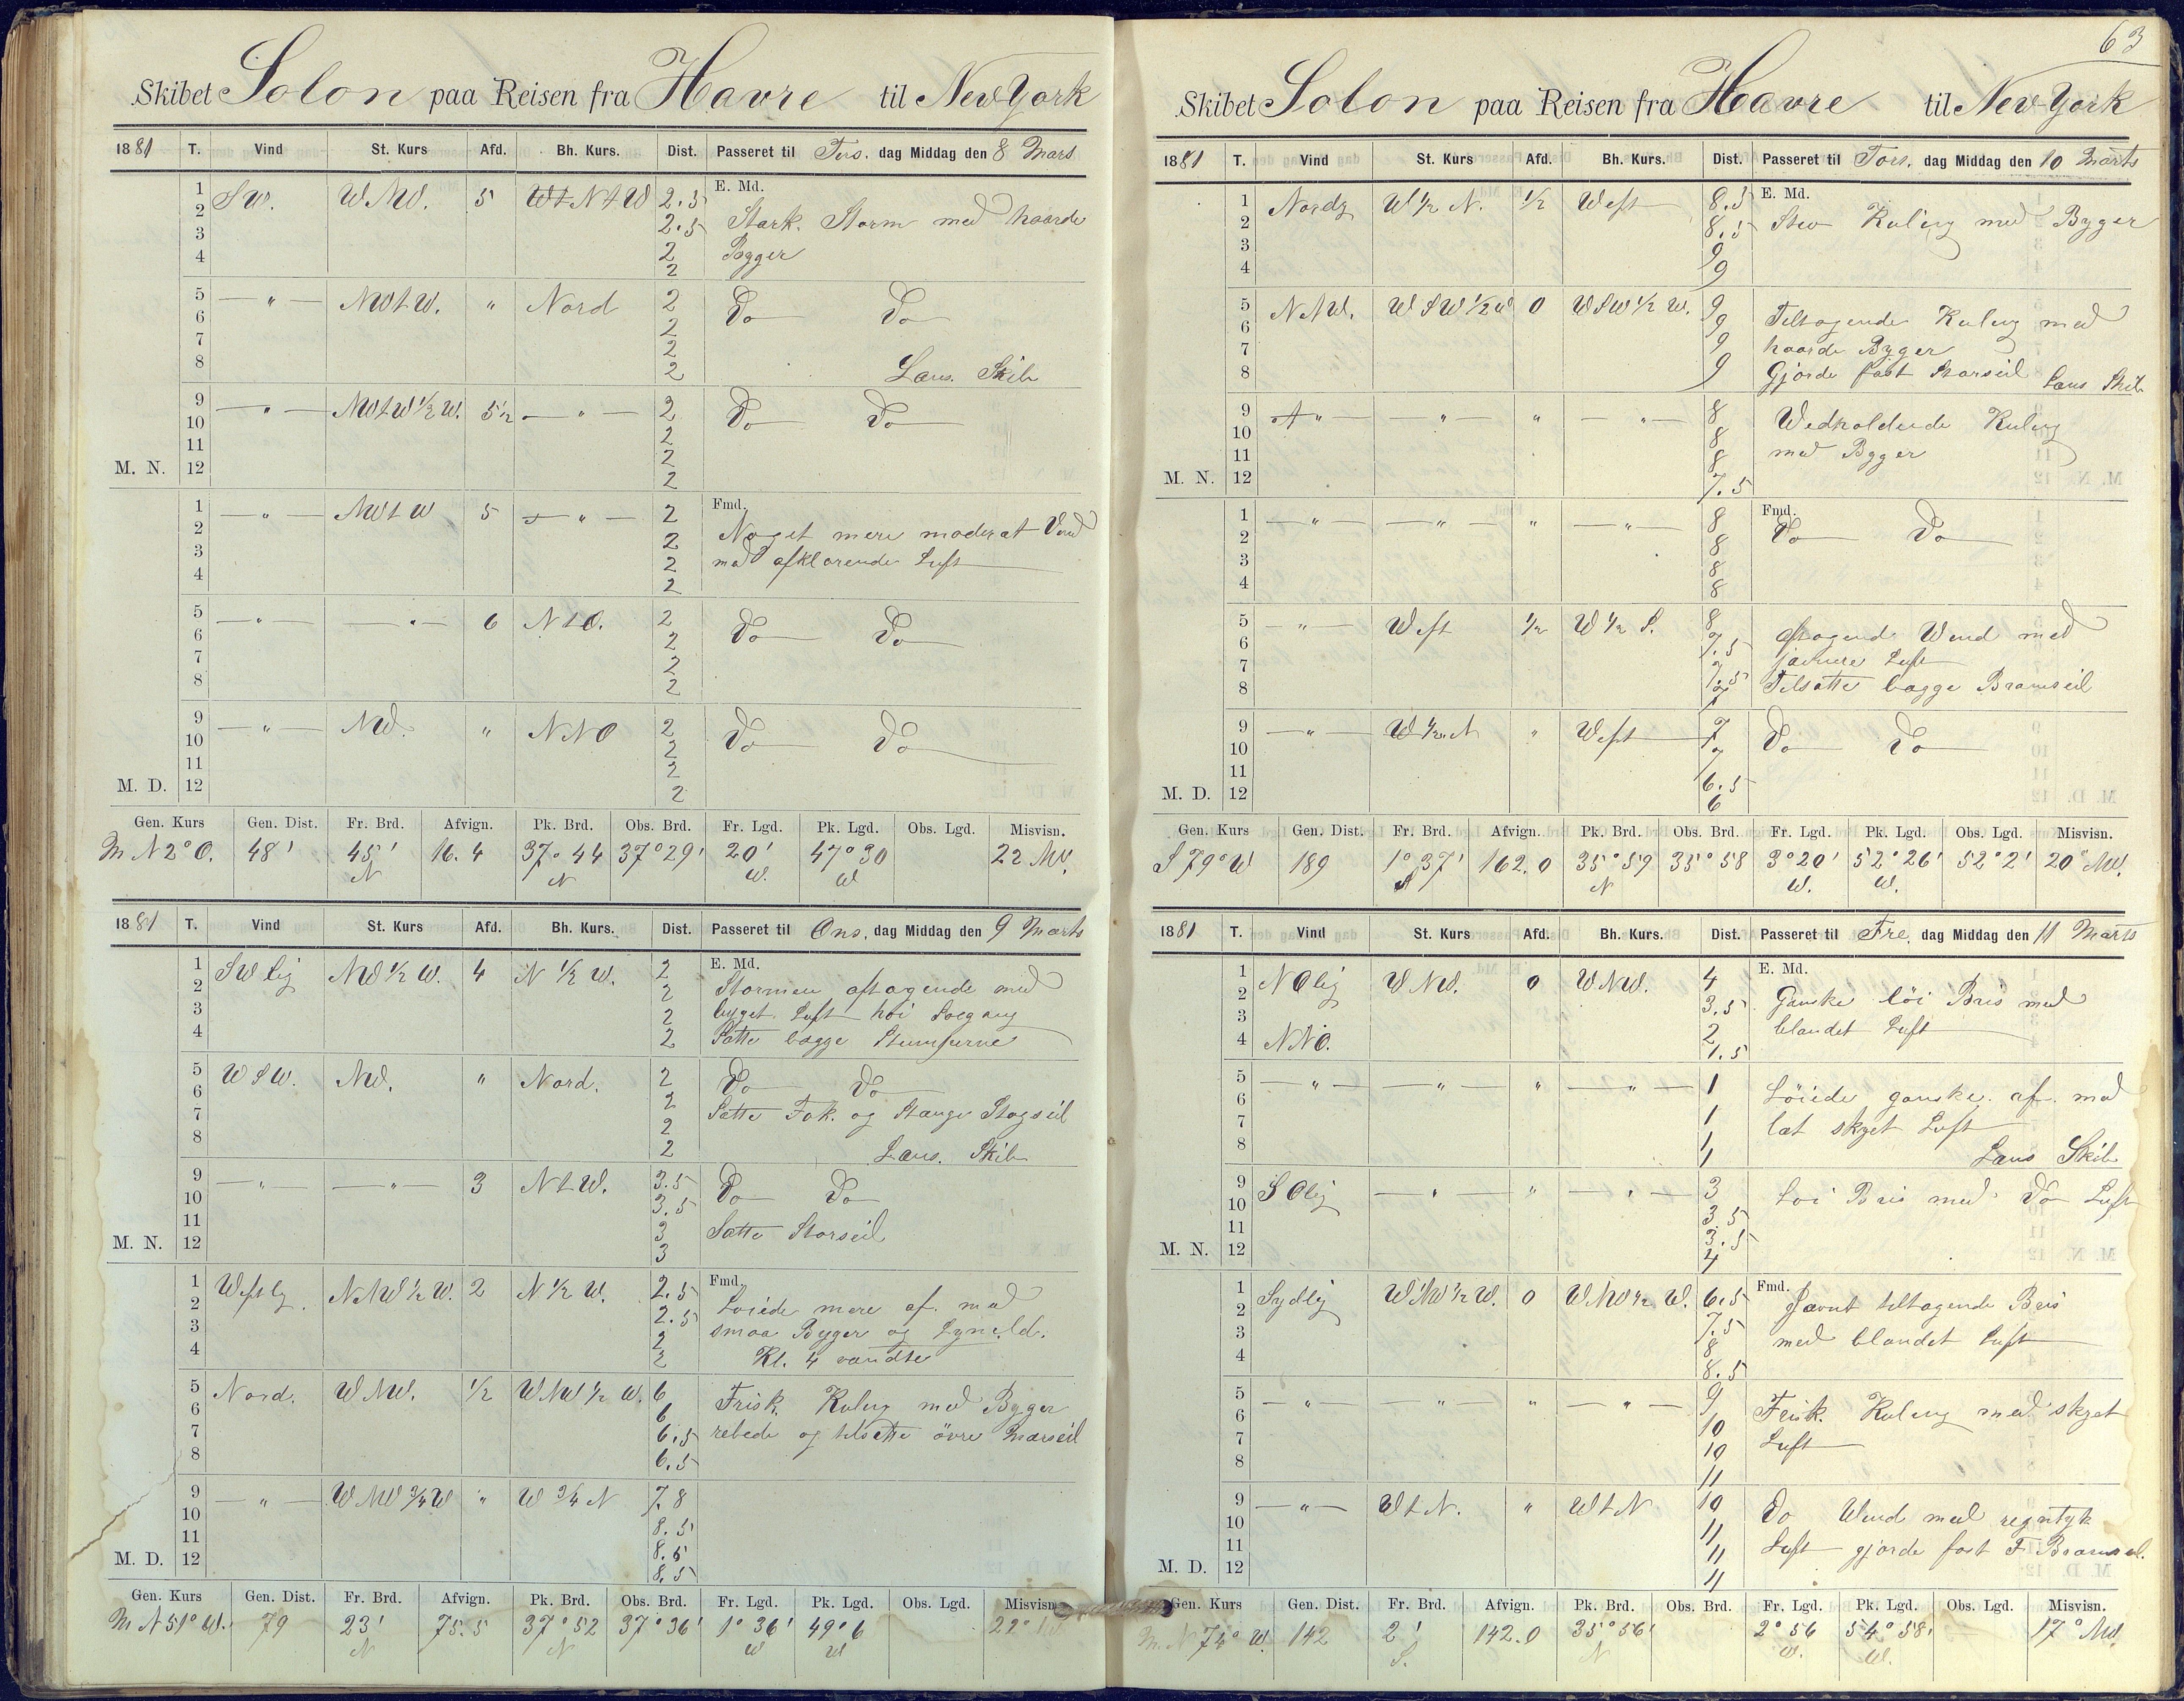 63
Skibet Solon paa Reisen fra Havre til New York
1881 T. Vind St. Kurs Afd. Bh. Kurs. Dist. Passeret til Tirs. dag Middag den 8 Marts
1 SW. WNW. 5 2.5 E. Md.
2 2.5 Stærk Storm med haarde
3 2 Byger
4 2
5 — " — NWtW. " Nord 2 Do Do
6 2
7 2
8 2 Læns. Skib
9 — " — NWtW ½ W. 5½ — " — 2 Do Do
10 2
11 2
M. N. 12 2
1 — " — NWtW 5 — " — 2 Fmd.
2 2 Noget mere moderat Vind
3 2 med afklarende Luft
4 2
5 — " — — " — 6 NtO. 2 Do Do
6 2
7 2
8 2
9 — " — NW. " NNO 2 Do Do
10 2
11 2
M. D. 12 2
Gen. Kurs Gen. Dist. Fr. Brd. Afvign. Pk. Brd. Obs. Brd. Fr. Lgd. Pk. Lgd. Obs. Lgd. Misvisn.
N 20 O. 48' 45' 16.4 37° 44 37° 29' 20' 47° 30 22 NW.
N N W. W
1881 T. Vind St. Kurs Afd. Bh. Kurs. Dist. Passeret til Ons. dag Middag den 9 Marts
1 SWlig NW ½ W. 4 N ½ W. 2 E. Md.
2 2 Stormen aftagende med
3 2 byget Luft höi Soegang
4 2 Satte begge Stumperne
5 WSW. NW. " Nord. 2 Do Do
6 2 Satte Fok. og Stænge Stagseil
7 2
8 2 Læns. Skib
9 — " — — " — 3 NtW. 3.5 Do Do
10 3.5
11 3 Satte Storseil
M. N. 12 3
1 Westlig. NNW ½ W. 2 N ½ W. 2.5 Fmd.
2 2.5 Loiede mere af. med
3 2 smaa Byger og Lyneld.
4 2 Kl. 4 vendte
5 Nord. WNW. ½ WNW ½ W. 6 Frisk. Kuling med Byger
6 6 rebede og tilsatte övre Mærseil
7 6.5
8 6.5
9 — " — WNW ¾ W " W ¾ N 7.8
10 8.5
11 8.5
M. D. 12 8.5
Gen. Kurs Gen. Dist. Fr. Brd. Afvign. Pk. Brd. Obs. Brd. Fr. Lgd. Pk. Lgd. Obs. Lgd. Misvisn.
N 51° W. 79 23' 75.5 37° 52 37° 36' 1° 36' 49° 6 22°
N N W W
Skibet Solon paa Reisen fra Havre til New York
1881 T. Vind St. Kurs Afd. Bh. Kurs. Dist. Passeret til Tors. dag Middag den 10 Marts
1 Nordlig W ½ N. ½ West 8.5 E. Md.
2 8.5 Stiv Kuling med Byger
3 9
4 9
5 NNW. WSW ½ W 0 WSW ½ W. 9 Tiltagende Kuling med
6 9 haarde Byger
7 9 Gjorde fast Storseil
8 9 Læns Skib
9 — " — — " — " — " — 8 Wedholdende Kuling
10 8 med Byger
11 8
M. N. 12 7.5
1 — " — — " — " — " — 8 Fmd.
2 8 Do Do
3 8
4 8
5 — " — West ½ W ½ S. 8 Aftagende Wind med
6 7.5 jævnere Luft
7 7.5 Tilsatte begge Bramseil
8 7
9 — " — W ½ N " West 7 Do Do
10 7
11 6.5
M. D. 12 6
Gen. Kurs Gen. Dist. Fr. Brd. Afvign. Pk. Brd. Obs. Brd. Fr. Lgd. Pk. Lgd. Obs. Lgd. Misvisn.
S 79° W 189 1° 37' 162.0 35° 59 35° 58 3° 20' 52° 26' 52° 2' 20° NW.
S N W. W.
1881 T. Vind St. Kurs Afd. Bh. Kurs. Dist. Passeret til Fre. dag Middag den 11 Marts
1 NOlig WNW. 0 WNW. 4 E. Md.
2 3.5 Ganske löi Bris med
3 2 blandet Luft
4 NNO. 1.5
5 — " — — " — " — " — 1 Löiede ganske. af. med
6 1 let skyet Luft
7 1
8 1 Læns Skib
9 SOlig — " — " — " — 3 Loi Bris med Do Luft
10 3.5
11 3.5
M. N. 12 4
1 Sydlig WNW ½ W. 0 WNW ½ W. 6.5 Fmd.
2 7.5 Jævnt tiltagende Bris
3 8 med blandet Luft
4 8.5
5 — " — — " — " — " — 9 Frisk. Kuling med skyet
6 10 Luft
7 10
8 11
9 — " — WtN. " WtN 10 Do Wind med regntyk
10 11 Luft gjorde fast F. Bramseil.
11 11
M. D. 12 11
Gen. Kurs Gen. Dist. Fr. Brd. Afvign. Pk. Brd. Obs. Brd. Fr. Lgd. Pk. Lgd. Obs. Lgd. Misvisn.
N 74° W. 142 2' 142.0 35° 56' 2° 56 54° 58' 17° NW.
S. N W. W.